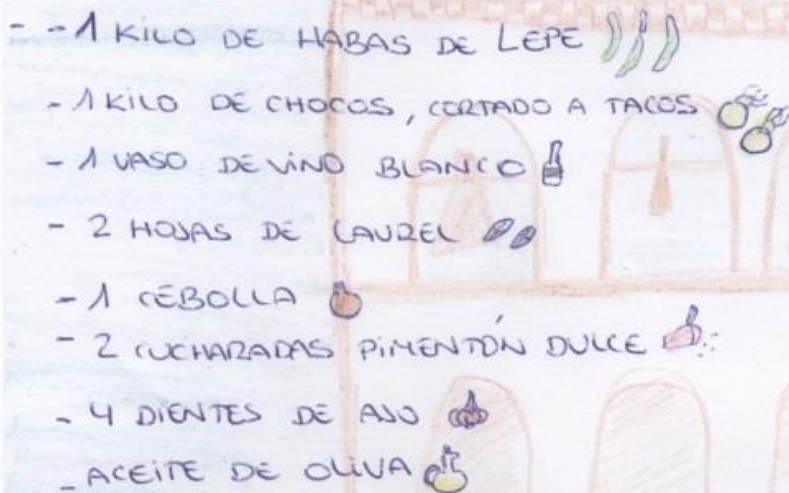 - -1 KILO DE HABAS DE LEPE
- 1 KILO DE CHOCOS, CORTADO A TACOS
- 1 VASO DE VINO BLANCO
- 2 HOJAS DE LAUREL
- 1 CEBOLLA
- 2 CUCHARADAS PIMENTÓN DULCE
- 4 DIENTES DE AJO
- ACEITE DE OLIVA